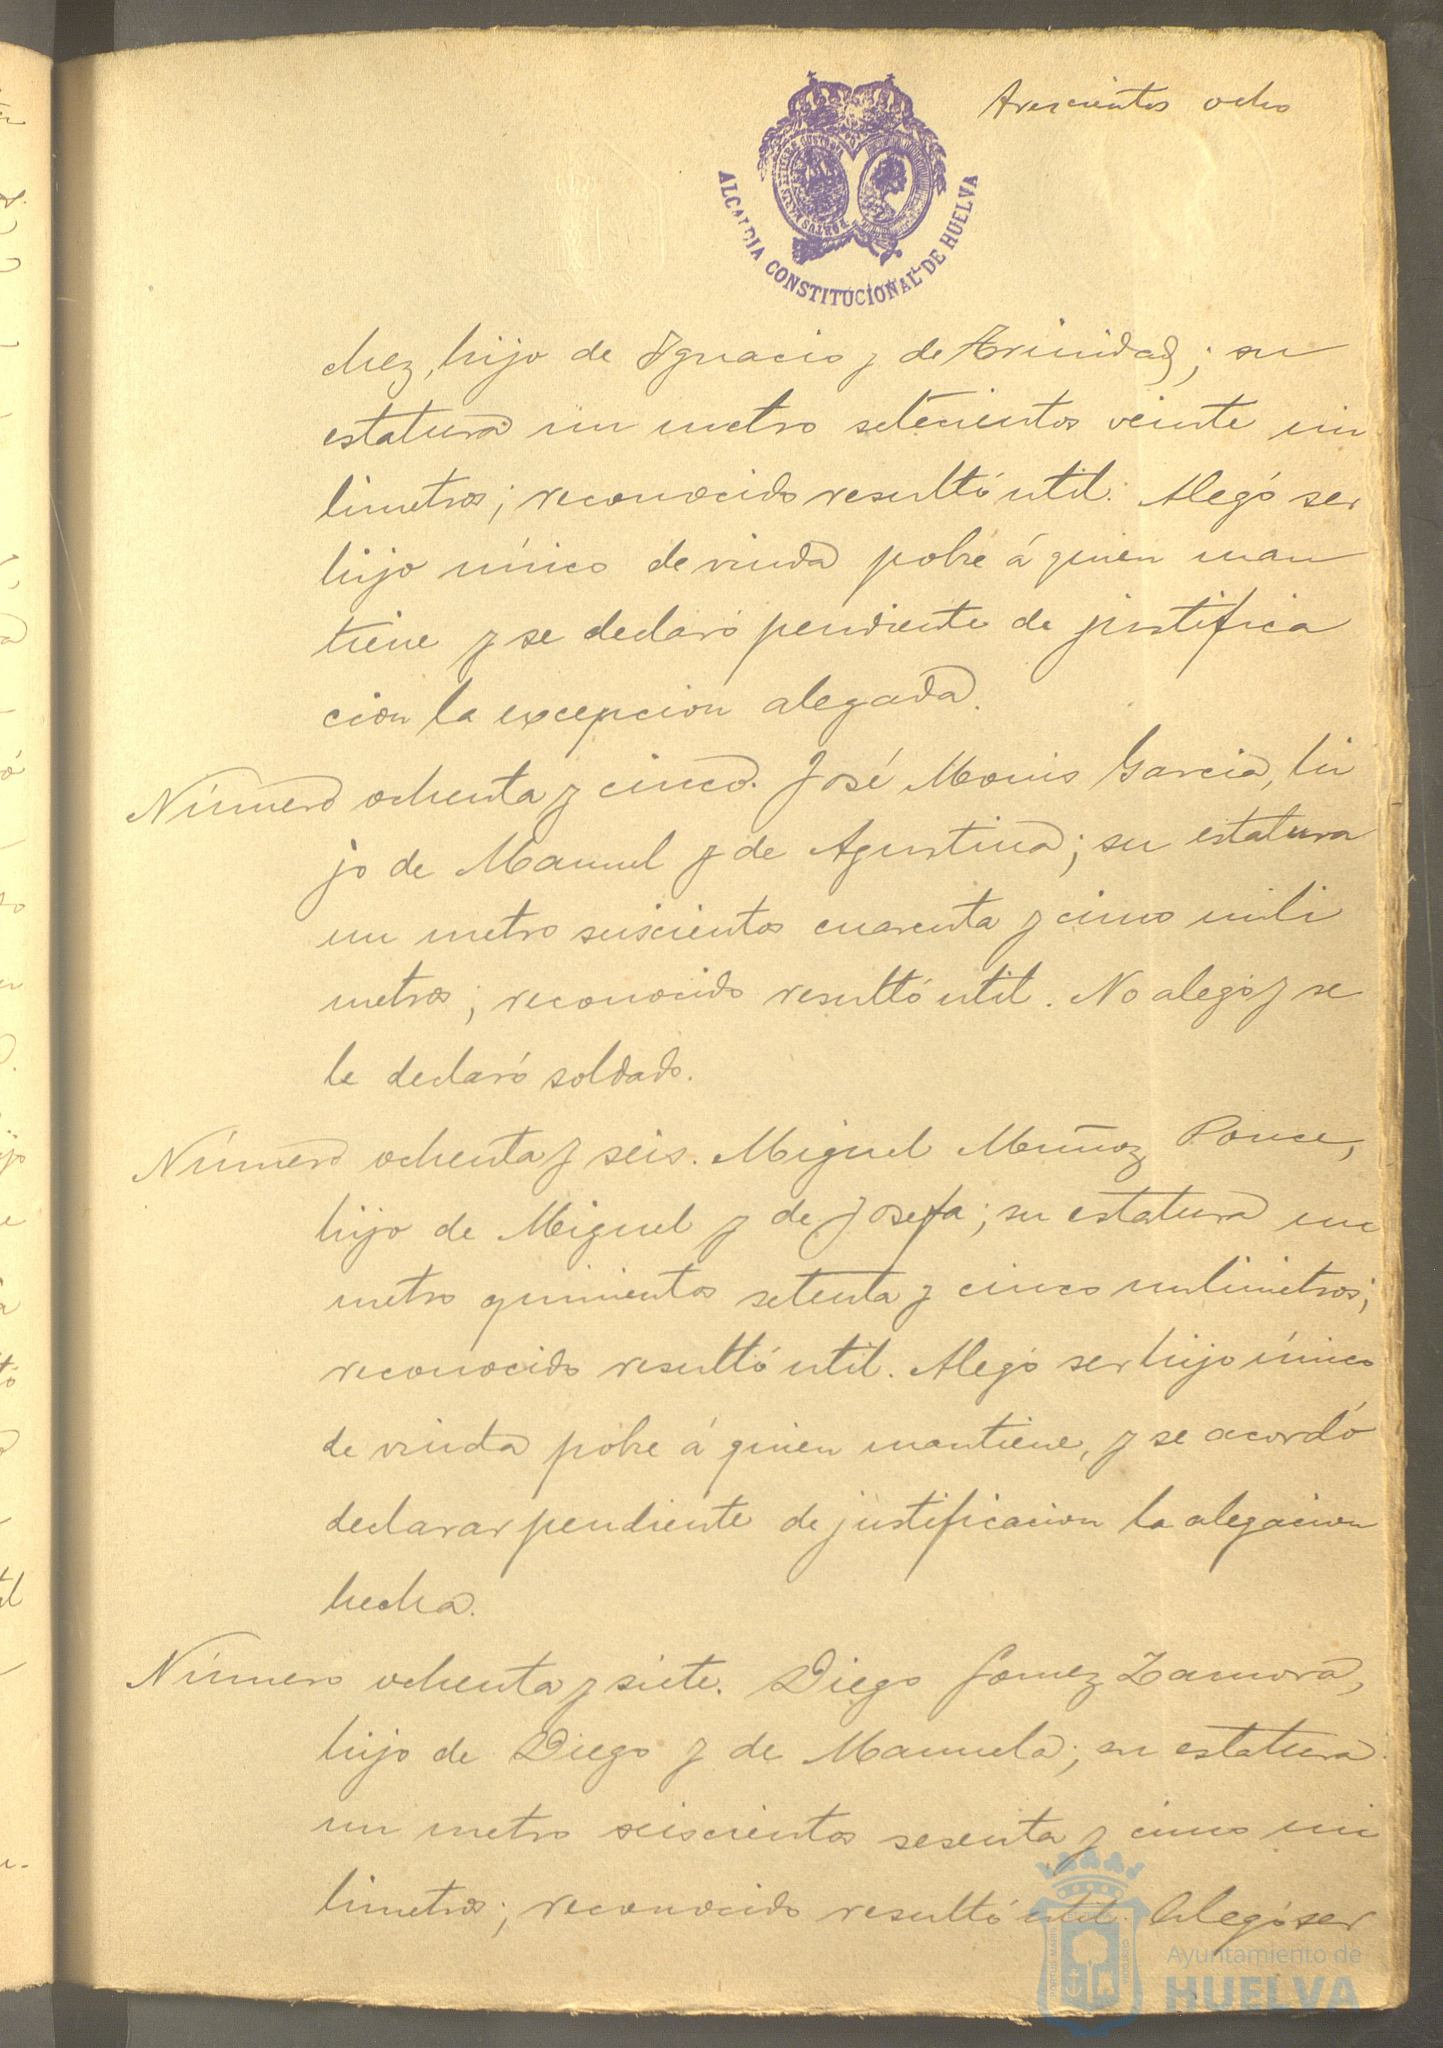 Trescientos ocho
ALCALDIA CONSTITUCIONAL DE HUELVA
chez, hijo de Ygnacio y de Trinidad; su
estatura un metro setecientos veinte mi
limetros; reconocido resultó util. Alegó ser
hijo único de viuda pobre á quien man
tiene y se declaró pendiente de justifica
cion la excepcion alegada.
Número ochenta y cinco. José Monis Garcia, hi
jo de Manuel y de Agustina; su estatura
un metro seiscientos cuarenta y cinco mili
metros; reconocido resultó util. No alegó y se
le declaró soldado.
Número ochenta y seis. Miguel Muñoz Ponce,
hijo de Miguel y de Josefa; su estatura un
metro quinientos setenta y cinco milimetros;
reconocido resultó util. Alegó ser hijo único
de viuda pobre á quien mantiene, y se acordó
declarar pendiente de justificacion la alegacion
hecha.
Número ochenta y siete. Diego Gomez Zamora,
hijo de Diego y de Manuela; su estatura
un metro seiscientos sesenta y cinco mi
limetros; reconocido resultó util. Alegó ser
Ayuntamiento de
HUELVA